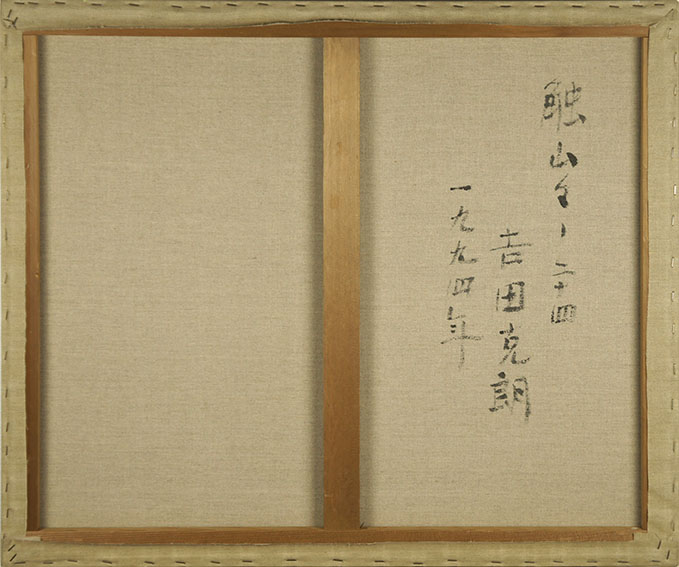 触山々ー二十四
吉田克朗
一九九四年